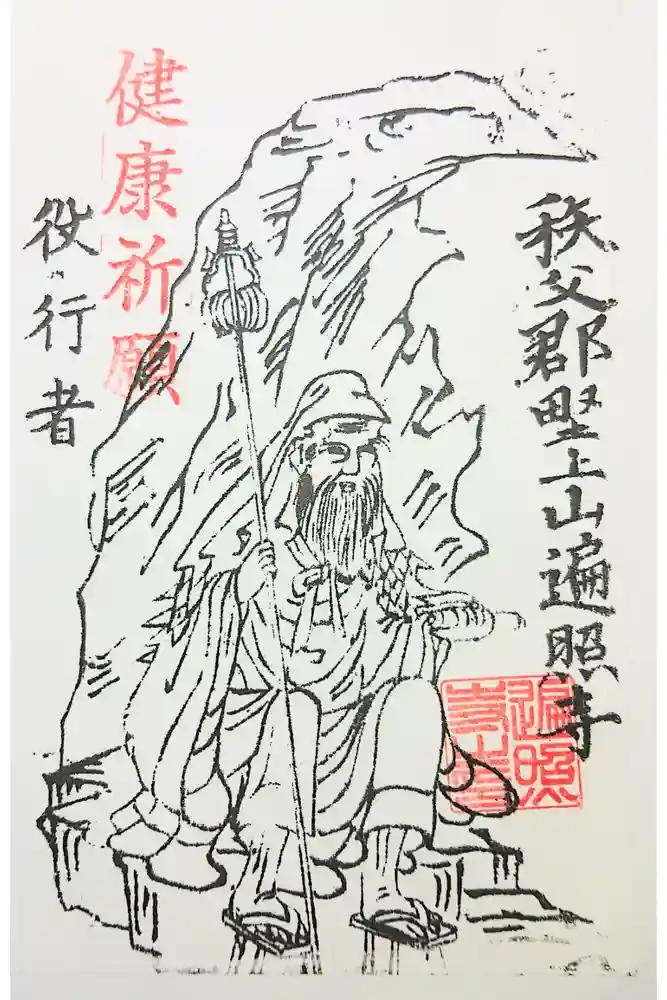 秩父郡野上山遍照寺
健康祈願
役行者
遍照寺